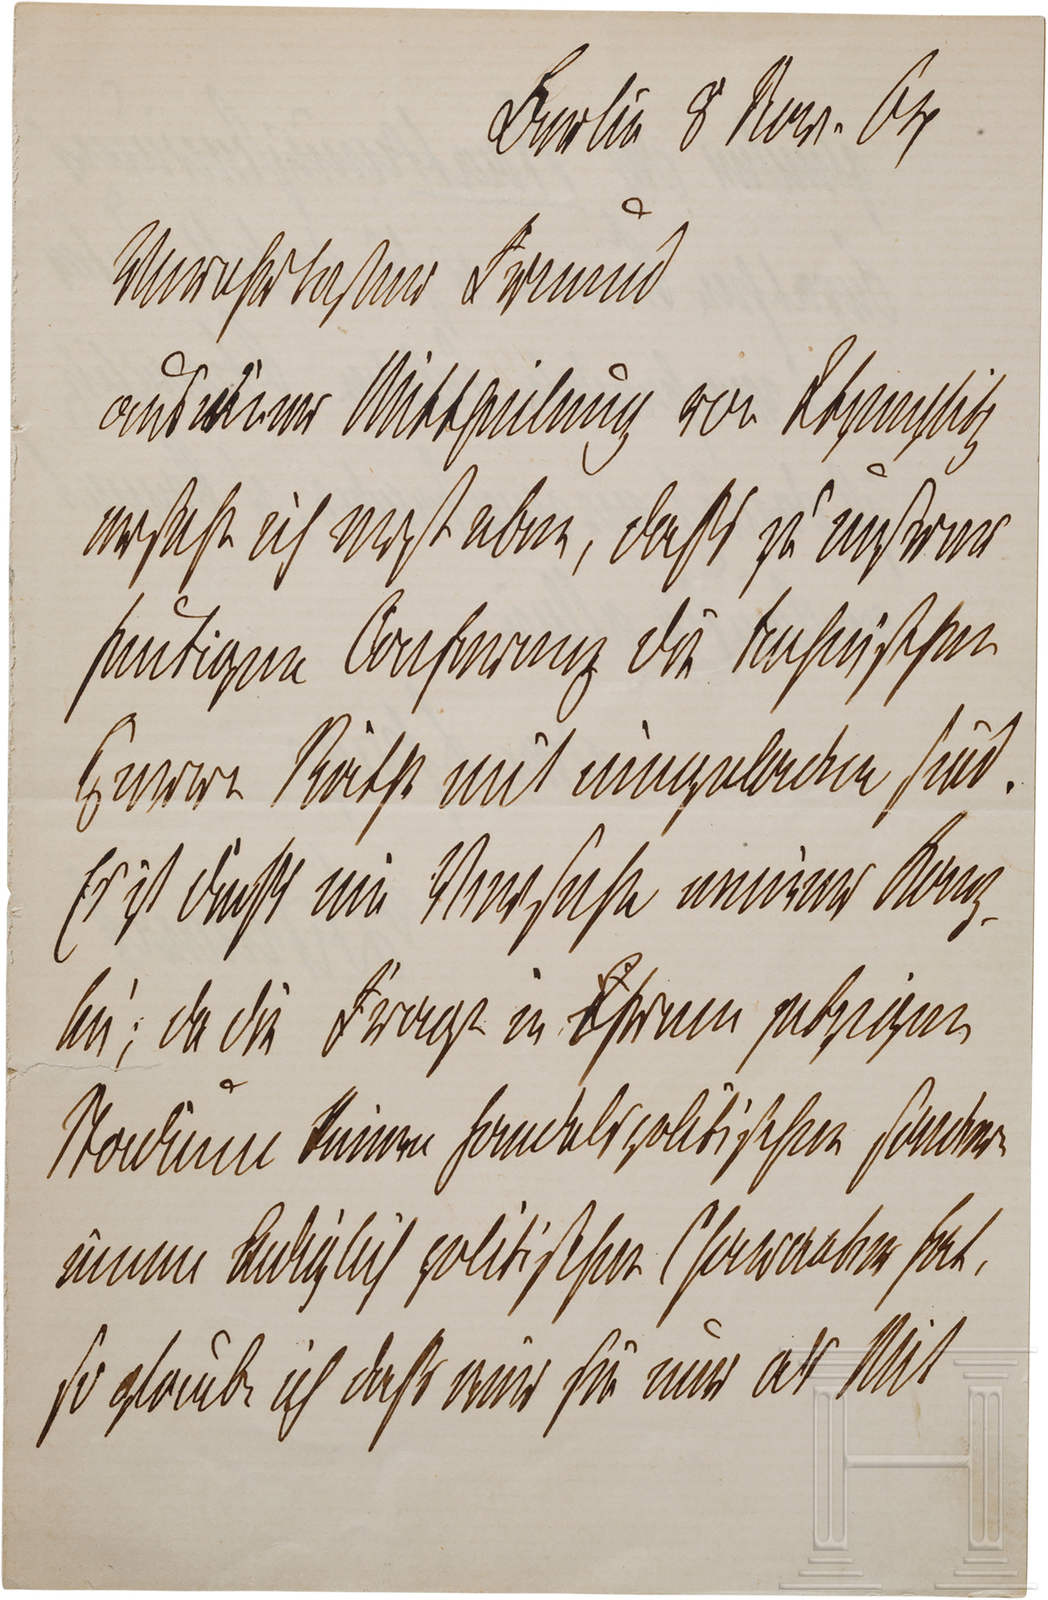 Berlin 8 Nov. 64
Verehrtester Freund
aus einer Mittheilung von Itzenplitz
ersehe ich erst eben, daß zu unsrer
heutigen Conferenz die technischen
Herrn Räthe mit eingeladen sind.
Es ist dieß ein Versehn meiner Kanz-
lei; da die Frage in Ihrem jetzigen
Stadium keinen handelspolitischen sondern
einen lediglich politischen Charakter hat,
so glaube ich daß wir sie nur als Mit